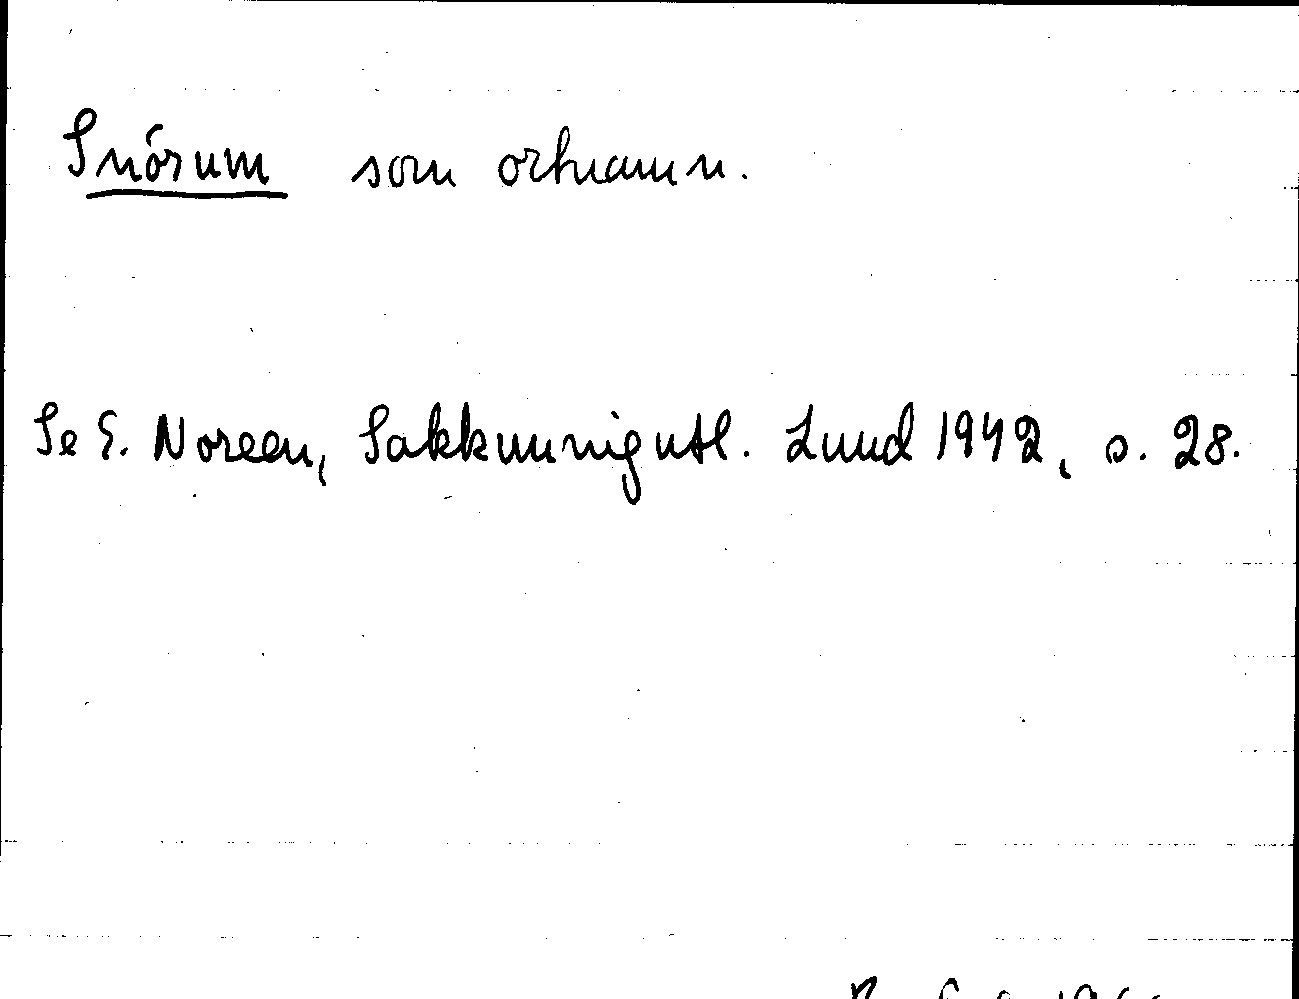 Snórum som ortnamn.
Se E. Noreen, Sakkunnigutl. Lund 1942, s. 28.